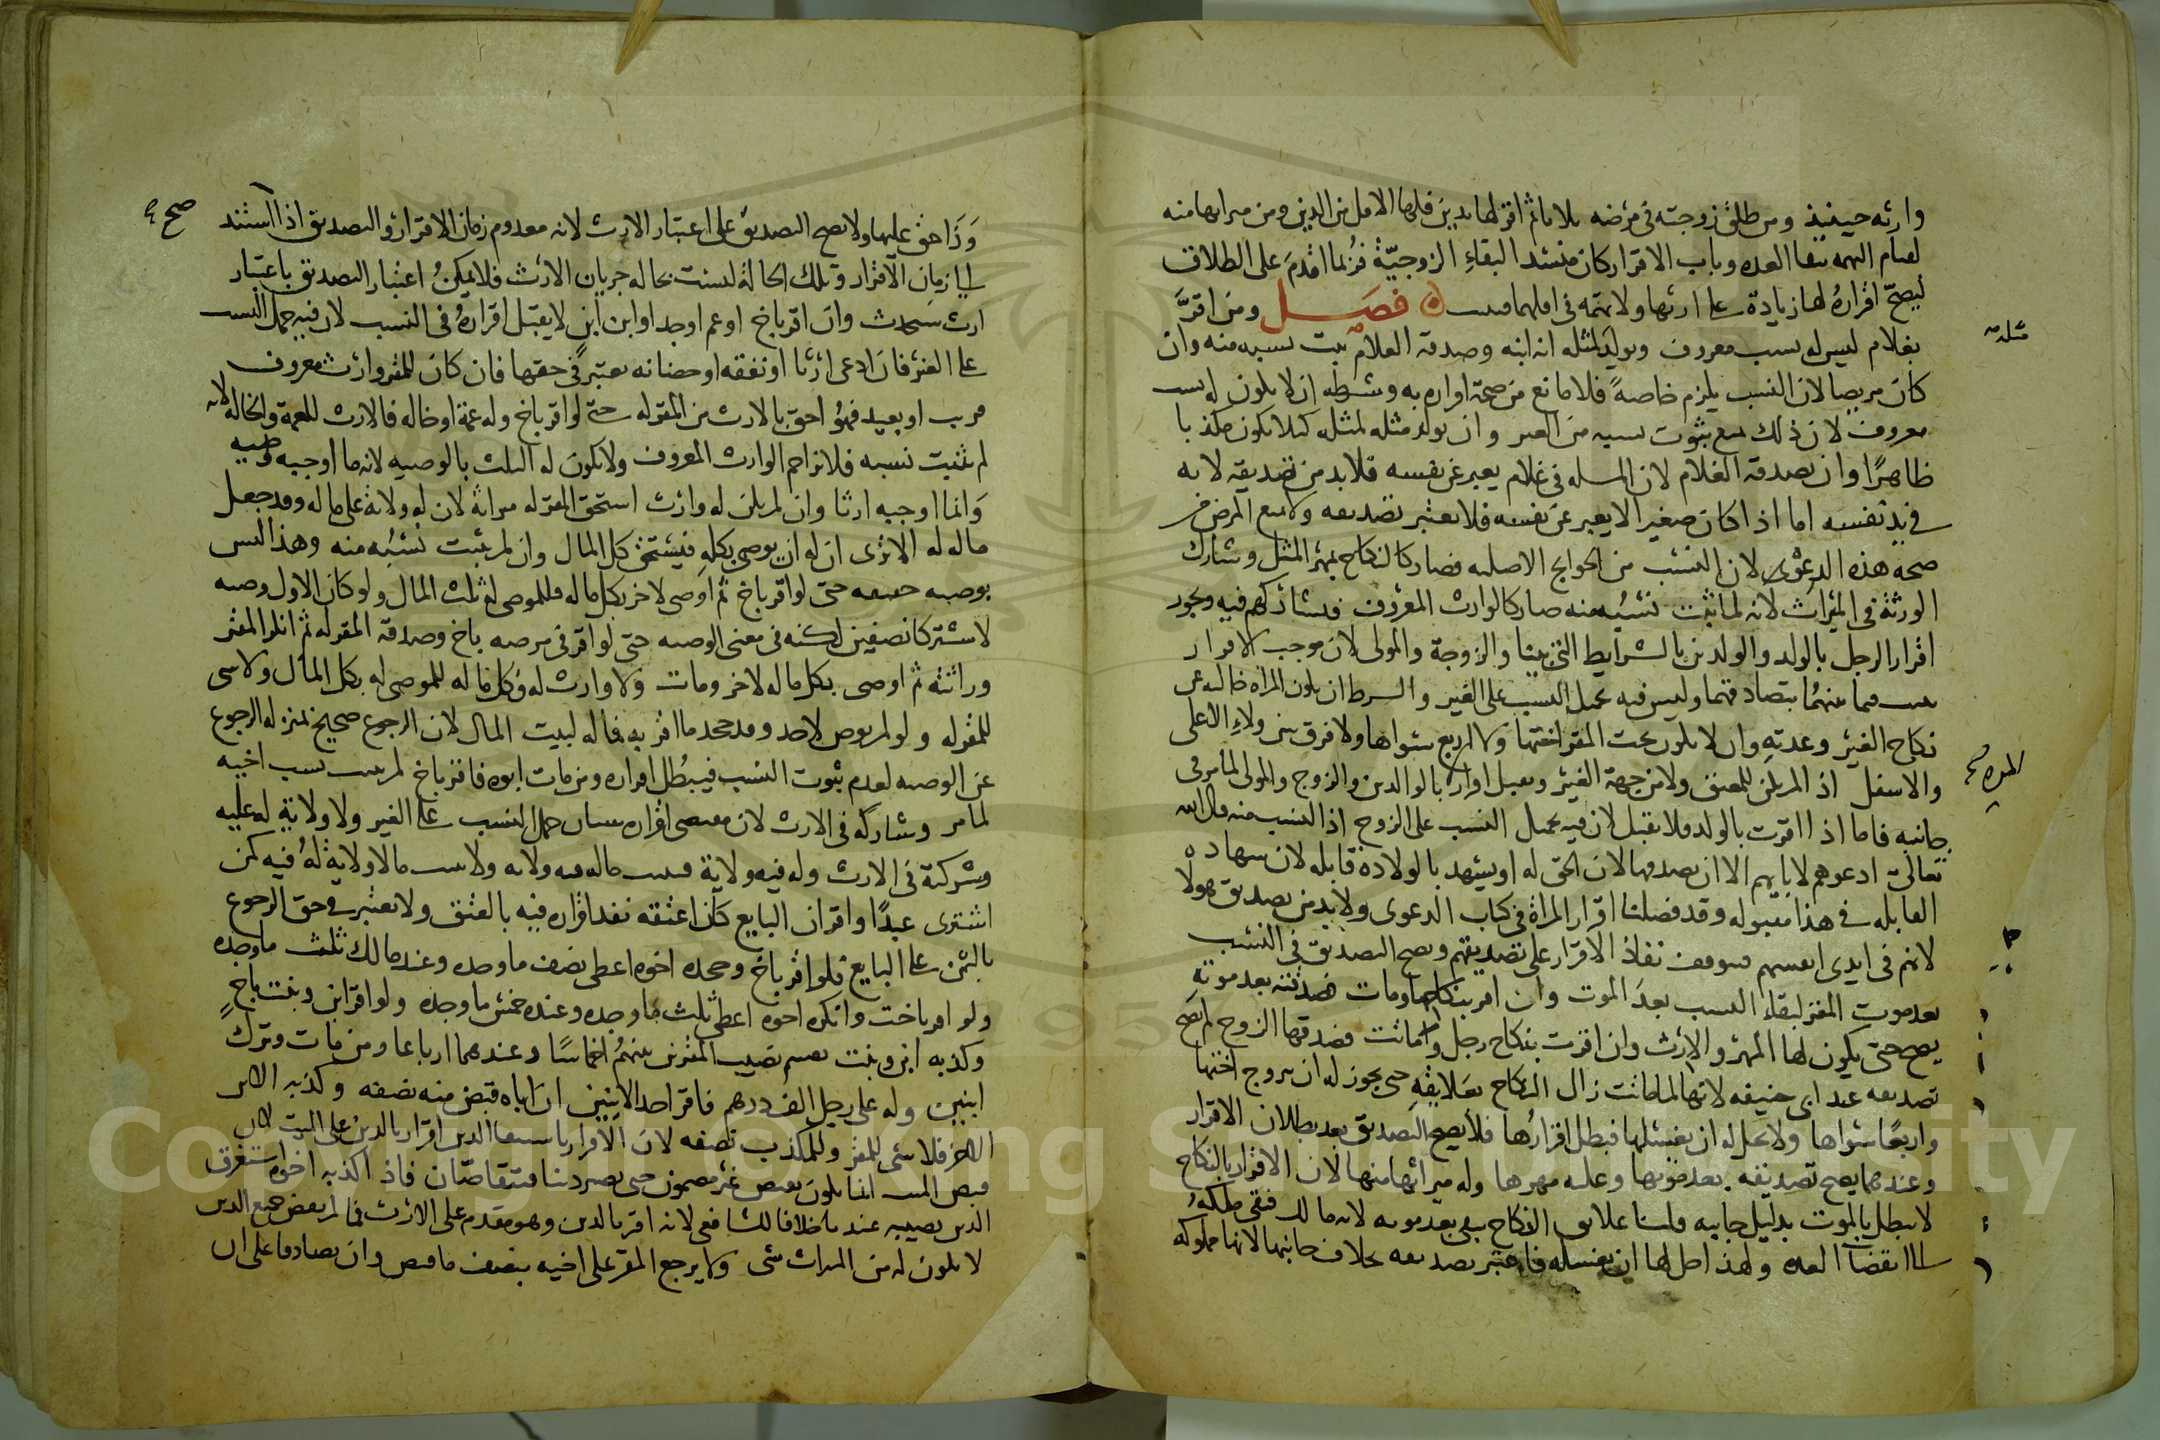 وارثه حينيذ ومن طلق زوجته في مرضه ثلاثا ثم اقر لها بدين فلها الاقل من الدين ومن ميراثها منه
لقيام التهمه ببقا العده وباب الاقرار كان منسدا لبقاء الزوجيّة فربما اقدم على الطلاق
ليصحّ اقراره لها زيادة على ارثها ولا تهمة في اقلهما فيثبت فصل ومن اقرّ
بغلام ليس له نسب معروف ويولد لمثله انه ابنه وصدقه الغلام ثبت نسبه منه وان
مسله
كان مريضا لان النسب يلزم خاصة فلا مانع من صحة اقراره به وشرطه ان لا يكون له نسب
معروف لان ذلك يمنع ثبوت نسبه من الغير وان يولد مثله لمثله كيلا يكون مكذبا
ظاهرًا وان يصدقه الغلام لان المسله في غلام يعبر عن نفسه فلا بد من تصديقه لانه
في يد نفسه اما اذا كان صغيرا لا يعبر عن نفسه فلا يعتبر تصديقه ولا يمنع المرض من
صحه هذه الدعوى لان النسب من الحوايج الاصليه فصار كالنكاح بمهر المثل وشارك
الورثة في الميراث لانه لما ثبت نسبه منه صار كالوارث المعروف فيشاركهم فيه ويجوز
اقرار الرجل بالولد والوالدين بالشرايط التي بينا والزوجة والمولى لان موجب الاقرار
يثبت فيما بينهما بتصادقهما وليس فيه تحميل النسب على الغير والشرط ان يكون المراة خاليه عن
نكاح الغير وعدته وان لا يكون تحت المقر اختها ولا اربع سواها ولا فرق بين ولاء الاعلى
والاسفل اذ المريكن للمعتق ولا من جهة الغير ويقبل اقرارها بالوالدين والزوج والمولى لما مر في
جانبه فاما اذا اقرت بالولد فلا يقبل لان فيه تحميل النسب على الزوج اذ النسب منه قال الله
تعالى ادعوهم لابايهم الا ان يصدقها لان الحق له او يشهد بالولادة قابله لان شهاده
القابله في هذا مقبوله وقد فصلنا اقرار المراة في كتاب الدعوى ولا بد من تصديق هولا
لانهم في ايدي انفسهم فيتوقف نفاذ الاقرار على تصديقهم ويصح التصديق في النسب
بعد موت المقر لبقاء النسب بعد الموت وان اقر بنكاحها ومات فصدقته بعد موته
يصح حتى يكون لها المهر والارث وان اقرت بنكاح رجل وماتت فصدقها الزوج لم يصح
تصديقه عند ابي حنيفه لانها لما ماتت زال النكاح بعلايقه حتى يجوز له ان يتزوج اختها
واربعًا سواها ولا يحل له ان يغسلها فبطل اقرارها فلا يصح التصديق بعد بطلان الاقرار
وعندهما يصح تصديقه بعد موتها وعليه مهرها وله ميراثها منها لان الاقرار بالنكاح
لا يبطل بالموت بدليل جانبه قلنا علايق النكاح يبقى بعد موته لانه مالك فبقي ملكه
الى انقضا العده ولهذا حل لها ان تغسله فاعتبر تصديقه بخلاف جانبها لانها مملوكة
وَذا حق عليها ولا يصح التصديق على اعتبار الارث لانه معدوم زمان الاقرار والتصديق اذا استند
صح
الى زمان الاقرار وتلك الحالة ليست بحاله جريان الارث فلا يمكن اعتبار التصديق باعتبار
ارث سيحدث وان اقر باخ او عم او جد او ابن ابن لا يقبل اقراره في النسب لان فيه حمل النسب
على الغير فان ادعى ارثا او نفقه او حضانه يعتبر في حقها فان كان للمقر وارث معروف
قريب او بعيد فهو احق بالارث من المقر له حتى لو اقر باخ وله عمة او خاله فالارث للعمة والخالة لانه
لم يثبت نسبه فلا يزاحم الوارث المعروف ولا يكون له الثلث بالوصيه لانه ما اوجبه وصيه
وانما اوجبه ارثا وان لم يكن له وارث استحق المقر له ميراثه لان له ولاية على ماله وقد جعل
ماله له الا ترى ان له ان يوصي بكله فيستحق كل المال وان لم يثبت نسبه منه وهذا ليس
بوصيه حقيقه حتى لو اقر باخ ثم اوصى لاخر بكل ماله فللموصى له ثلث المال ولو كان الاول وصيه
لاشتركا نصفين لكنه في معنى الوصيه حتى لو اقر في مرضه باخ وصدقه المقر له ثم انكر المقر
وراثته ثم اوصى بكل ماله لاخر ومات ولا وارث له فكل ماله للموصى له بكل المال ولا شي
للمقر له ولو لم يوص لاحد وقد جحد ما اقر به فماله لبيت المال لان الرجوع صحيح فمنزله الرجوع
عن الوصيه لعدم ثبوت النسب فيبطل اقراره ومن مات ابوه فاقر باخ لم يثبت نسب اخيه
لما مر وشاركه في الارث لان مقتضى اقراره شيئان حمل النسب على الغير ولا ولاية له عليه
وشركته في الارث وله فيه ولاية فيثبت ماله فيه ولايه ولا يثبت مالا ولاية له فيه كمن
اشترى عبدًا واقر ان البايع كان اعتقه نفذ اقراره فيه بالعتق ولا يعتبر في حق الرجوع
بالثمن على البايع فلو اقر باخ وجحده اخوه اعطى نصف ما وجده وعند مالك ثلث ما وجده
ولو اقر باخت وانكره اخوه اعطى ثلث ما وجده وعنده خمس ما وجده ولو اقر ابن وبنت باخ
وكذبه ابن وبنت يقسم نصيب المقرين بينهم اخماسًا وعندهما ارباعا ومن مات وترك
ابنين وله على رجل الف درهم فاقر احد الابنين ان اباه قبض منه نصفه وكذبه الاخر
فلا شي للمقر وللمكذب نصفه لان الاقرار باستيفا الدين اقرار بالدين على الميت لان
قبض الميت انما يكون بقبض غير مضمون حتى يصير دينا فيتقاصّان فاذا كذبه اخوه استغرق
الدين نصيبه عندنا خلافا للشافعي لانه اقر بالدين وهو مقدم على الارث فما لم يقض جميع الدين
لا يكون له من الميراث شي ولا يرجع المقر على اخيه بنصف ما قبض وان تصادقا على ان
Copyright © King Saud University